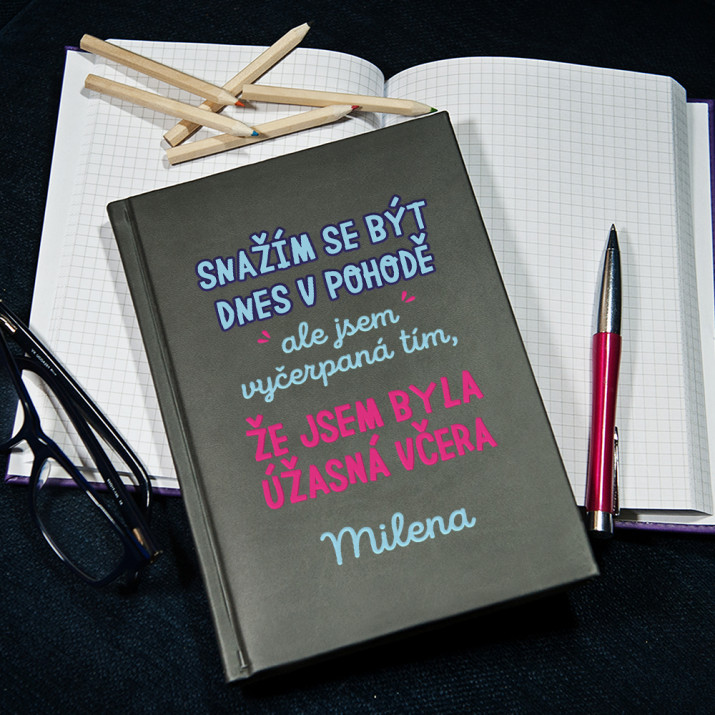 SNAŽÍM SE BÝT
DNES V POHODĚ
ale jsem
vyčerpaná tím,
ŽE JSEM BYLA
ÚŽASNÁ VČERA
Milena